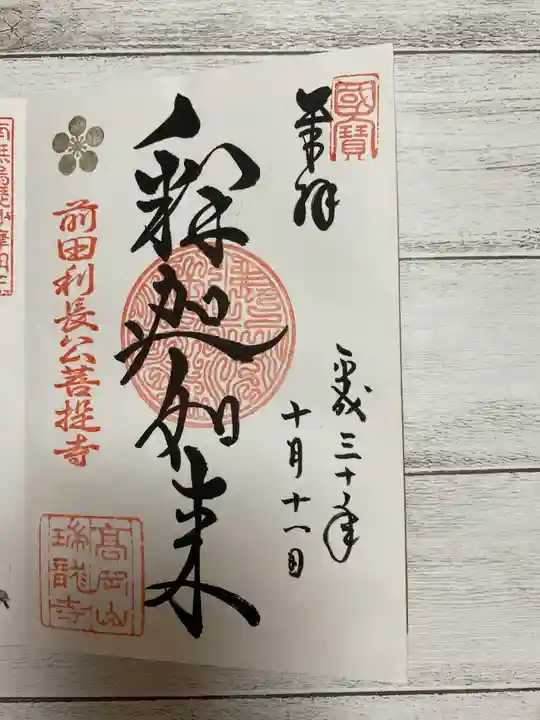 國寶
奉拝
平成三十年
十月十一日
釋迦如来
前田利長公菩提寺
高岡山
瑞龍寺